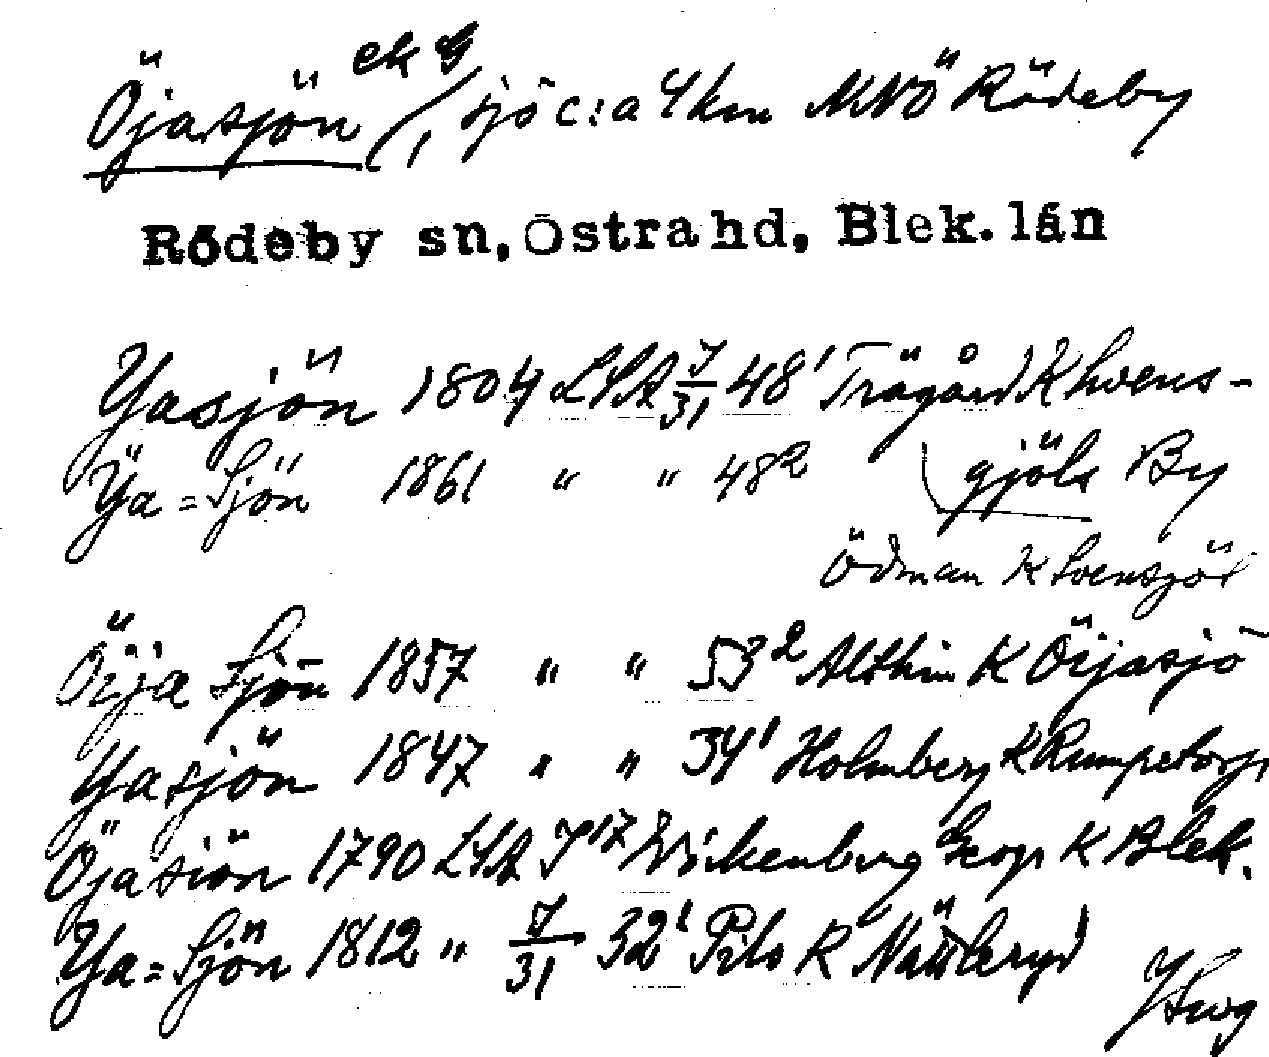 Öjasjön ek G, sjö c:a 4 km NNÖ Rödeby
Rödeby sn, Östra hd, Blek. län
Yasjön 1804 LSA J/31 48¹ Trägård K Svens-
Ÿa=Sjön 1861 " " 48² gjöls By
Ödman K Svensgöl
Öija Sjön 1857 " " 53² Althin K Öijasjö
Yasjön 1847 " " 34¹ Holmberg K Rumpetorp
Öjasiön 1790 LSA J¹⁷ Wickenberg Geogr K Blek.
Ya=Sjön 1812 " J/31 32¹ Pilo K Nättleryd